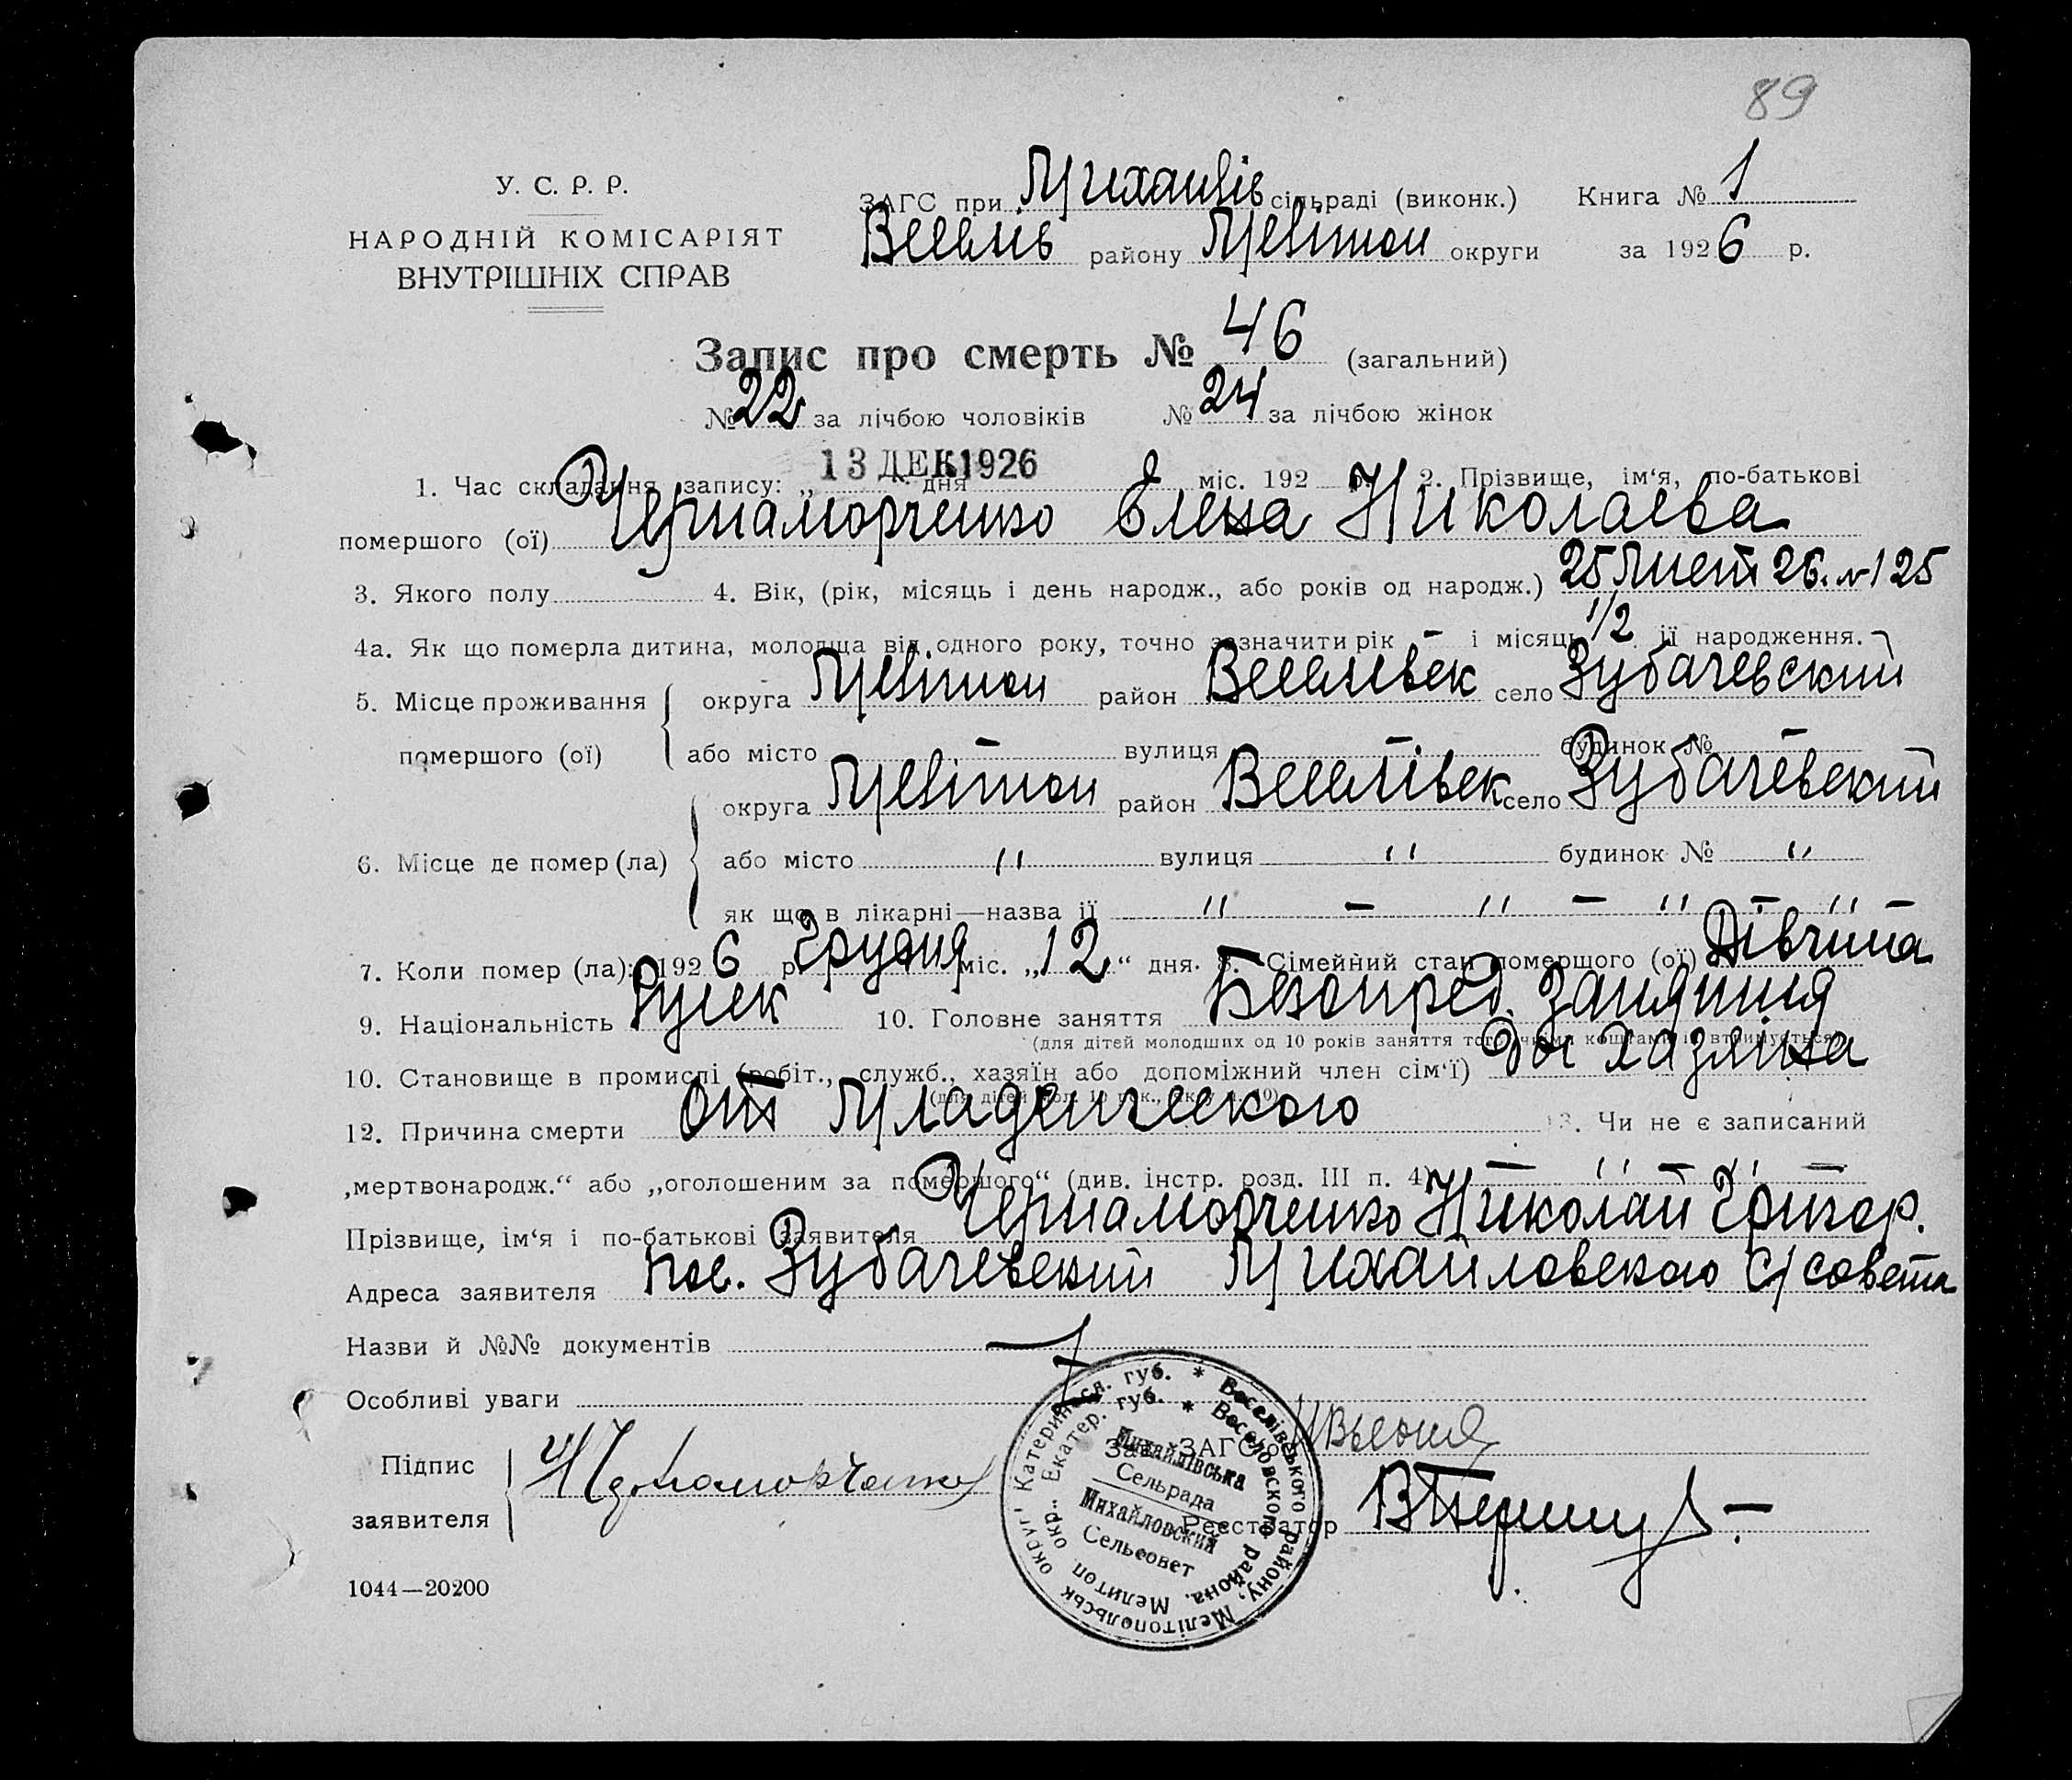 89
У. С. Р. Р.
НАРОДНІЙ КОМІСАРІЯТ
ВНУТРІШНІХ СПРАВ
ЗАГС при Михайлів сільраді (виконк.) Книга № 1
Веселів району Мелітоп округи за 1926 р.
Запис про смерть № 46 (загальний)
№ 22 за лічбою чоловіків № 24 за лічбою жінок
1. Час складання запису: „ 13 ДЕК 1926 “ дня міс. 192 р. 2. Прізвище, ім‘я, по-батькові
помершого (ої) Чернаморченко Елена Николаева
3. Якого полу 4. Вік, (рік, місяць і день народж., або років од народж.) 25 Лист 26. № 125
4а. Як що померла дитина, молодша від одного року, точно зазначити рік – і місяць 1/2 її народження.
5. Місце проживання помершого (ої) округа Мелітоп район Веселівск село Зубачевский
або місто – вулиця – будинок № –
6. Місце де помер (ла) округа Мелітоп район Веселівск село Зубачевский
або місто " вулиця " будинок № "
як що в лікарні—назва її " – " – " – " –
7. Коли помер (ла): 1926 р. Грудня міс. „12“ дня. 8. Сімейний стан помершого (ої) Дівчина
9. Національність Русск 10. Головне заняття Безопред. Заняття
(для дітей молодших од 10 років заняття того, чиїми коштами їх втримується)
10. Становище в промислі (робіт., служб., хазяїн або допоміжний член сім‘ї) Доч хазяїна
12. Причина смерти от Младенческого 13. Чи не є записаний
„мертвонародж.“ або „оголошеним за помершого“ (див. інстр. розд. III п. 4) – " – " –
Прізвище, ім‘я і по-батькові заявителя Чернаморченко Николай Григор.
Адреса заявителя пос. Зубачевский Михайловского с/совета
Назви й №№ документів
Особливі уваги
Підпис
заявителя
Зав. ЗАГС‘ом
Реєстратор
Катериносл. губ. * Веселівського району, Мелітопольськ округ
Екатер. губ. * Веселовского района, Мелитоп окр.
Михайлівська
Сельрада
Михайловский
Сельсовет
1044—20200